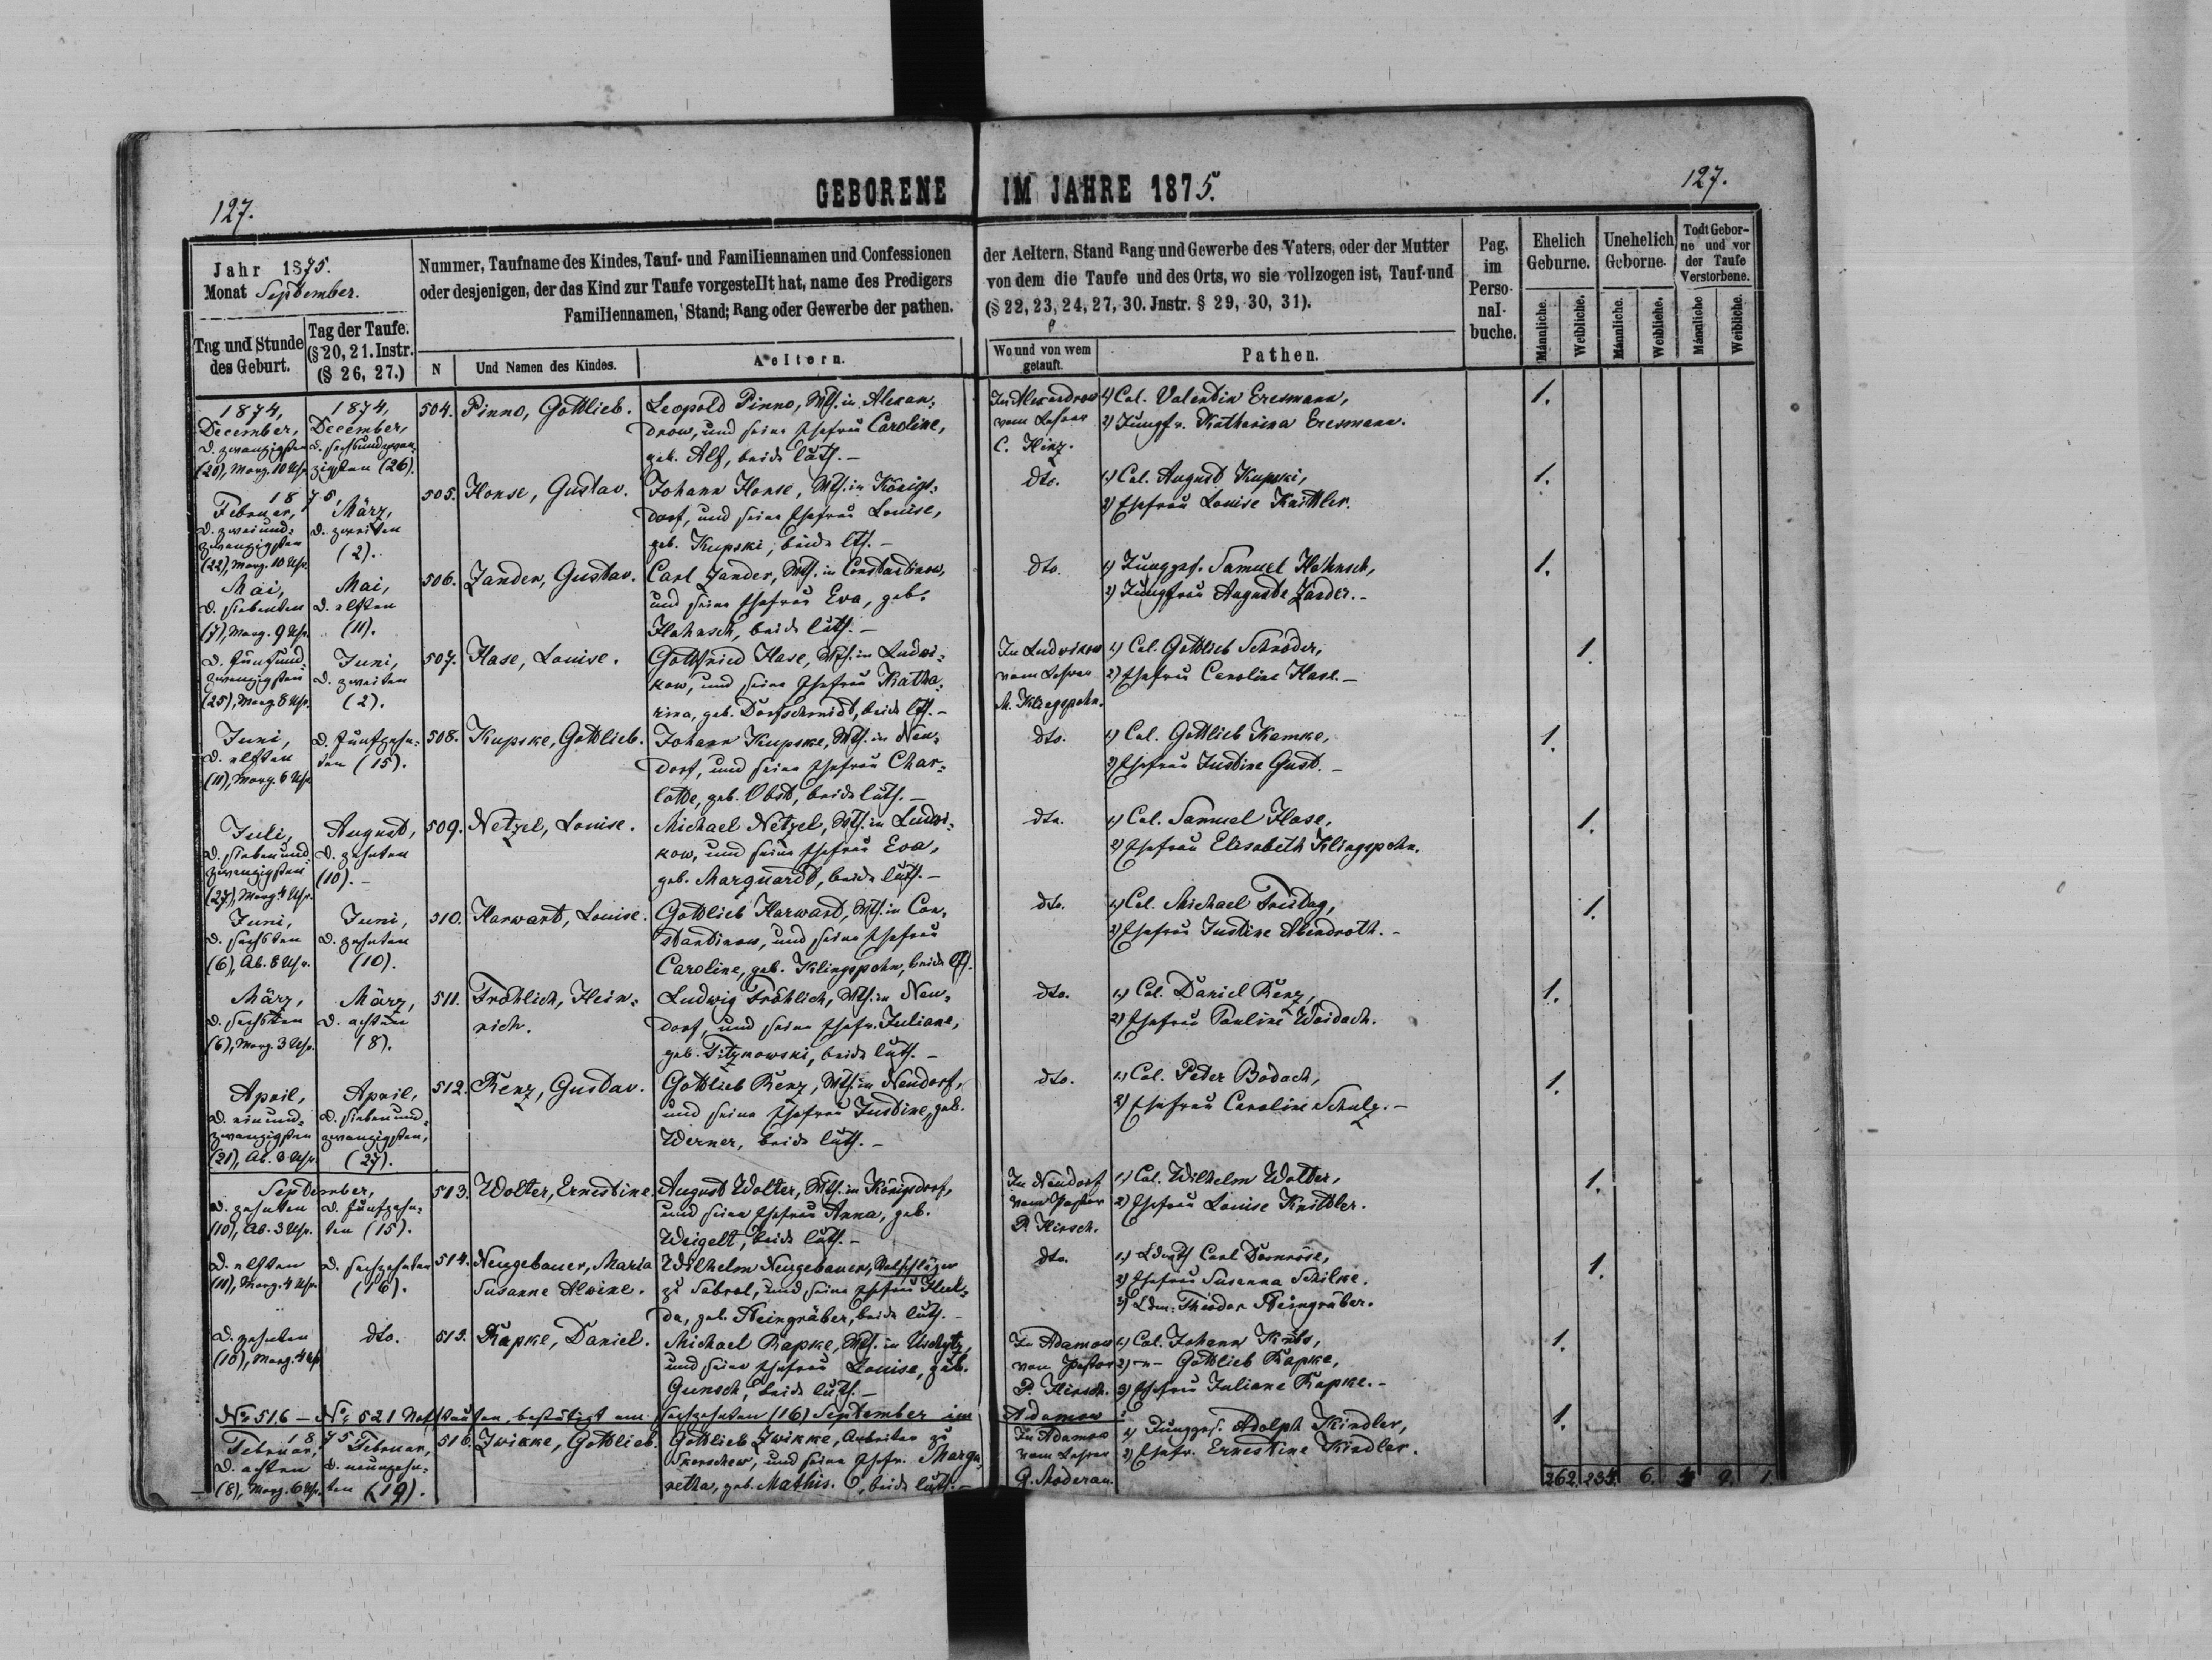 GEBORENE IM JAHRE 1875.
127.
127.
Jahr 1875.
Monat September.
Tag und Stunde
des Geburt.
Tag der Taufe.
(§ 20, 21. Instr.
(§ 26, 27.)
Nummer, Taufname des Kindes, Tauf- und Familiennamen und Confessionen
oder desjenigen, der das Kind zur Taufe vorgestellt hat, name des Predigers
Familiennamen, Stand; Rang oder Gewerbe der pathen.
N
Und Namen des Kindes.
Aeltern.
der Aeltern, Stand Rang und Gewerbe des Vaters, oder der Mutter
von dem die Taufe und des Orts, wo sie vollzogen ist, Tauf-und
(§ 22, 23, 24, 27, 30. Jnstr. § 29, 30, 31).
Wo und von wem
getauft.
Pathen.
Pag.
im
Perso-
nal-
buche.
Ehelich
Geburne.
Unehelich
Geborne.
Todt Gebor-
ne und vor
der Taufe
Verstorbene.
Männliche.
Weibliche.
Männliche.
Weibliche.
Männliche
Weibliche.
1874,
December,
d. zwanzigsten
(20), Morg. 10 Uhr
1874,
December,
d. sechsundzwan-
zigsten (26).
504.
Pinno, Gottlieb.
Leopold Pinno, Wth. in Alexan-
drow, und seine Ehefrau Caroline,
geb. Alf, beide luth. –
In Alexandrow
vom Lehrer
C. Hinz.
1) Col. Valentin Eresmann,
2) Jungfr. Katharina Eresmann.
1.
1875,
Februar,
d. zweiund-
zwanzigsten
(22), Morg. 10 Uhr.
März,
d. zweiten
(2).
505.
Honse, Gustav.
Johann Honse, Wth. in Königs-
dorf, und seine Ehefrau Louise,
geb. Kupski, beide lth. –
dto.
1) Col. August Kupski,
2) Ehefrau Louise Knittler.
1.
Mai,
d. siebenten
(7), Morg. 9 Uhr.
Mai,
d. elften
(11).
506.
Zander, Gustav.
Carl Zander, Wth. in Constantinow,
und seine Ehefrau Eva, geb.
Hahnsch, beide luth. –
dto.
1) Junggs. Samuel Hahnsch,
2) Jungfrau Auguste Zander. –
1.
d. fünfund-
zwanzigsten
(25), Morg. 8 Uhr.
Juni,
d. zweiten
(2).
507.
Hase, Louise.
Gottfried Hase, Wth. in Ludwi-
kow, und seine Ehefrau Katha-
rina, geb. Dorfschmidt, beide lth. –
In Ludwikow
vom Lehrer
M. Klingspohn.
1) Col. Gottlieb Schröder,
2) Ehefrau Caroline Hase. –
1.
Juni,
d. elften
(11), Morg. 6 Uhr
d. fünfzehn-
ten (15).
508.
Kupske, Gottlieb.
Johann Kupske, Wth. in Neu-
dorf, und seine Ehefrau Char-
lotte, geb. Obst, beide luth. –
dto.
1) Col. Gottlieb Kamke,
2) Ehefrau Justine Gust. –
1.
Juli,
d. siebenund-
zwanzigsten
(27), Morg. 4 Uhr.
August,
d. zehnten
(10). –
509.
Netzel, Louise.
Michael Netzel, Wth. in Ludwi-
kow, und seine Ehefrau Eva,
geb. Marquardt, beide luth. –
dto.
1) Col. Samuel Hase,
2) Ehefrau Elisabeth Klingspohn.
1.
Juni,
d. sechsten
(6), Ab. 8 Uhr.
Juni,
d. zehnten
(10).
510.
Harwart, Louise.
Gottlieb Harwart, Wth. in Con-
stantinow, und seine Ehefrau
Caroline, geb. Klingspohn, beide lth.
dto.
1) Col. Michael Freitag,
2) Ehefrau Justine Abendroth. –
1.
März,
d. sechsten
(6), Morg. 3 Uhr.
März,
d. achten
(8).
511.
Fröhlich, Hein-
rich.
Ludwig Fröhlich, Wth. in Neu-
dorf, und seine Ehefr. Juliane,
geb. Pitznowski, beide luth. –
dto.
1) Col. Daniel Renz,
2) Ehefrau Pauline Woidach.
1.
April,
d. einund-
zwanzigsten
(21), Ab. 3 Uhr.
April,
d. siebenund-
zwanzigsten,
(27).
512.
Renz, Gustav.
Gottlieb Renz, Wth. in Neudorf,
und seine Ehefrau Justine, geb.
Werner, beide luth. –
dto.
1) Col. Peter Bodach,
2) Ehefrau Caroline Schulz. –
1.
September,
d. zehnten
(10), Ab. 3 Uhr.
d. fünfzehn-
ten (15).
513.
Wolter, Ernestine.
August Wolter, Wth. in Königsdorf,
und seine Ehefrau Anna, geb.
Weigelt, beide luth. –
In Neudorf
vom Pastor
P. Hirsch.
1) Col. Wilhelm Wolter,
2) Ehefrau Louise Knittler.
1.
d. elften
(11), Morg. 4 Uhr.
d. sechzehnten
(16).
514.
Neugebauer, Maria
Susanne Alwine.
Wilhelm Neugebauer,
zu Sobrol, und seine Ehefrau Hul-
da, geb. Steingräber, beide luth. –
dto.
1) Carl Dornröse,
2) Ehefrau Susanna Schilke.
3) Theodor Steingräber.
1.
d. zehnten
(10), Morg. 4 Uhr
dto.
515.
Rapke, Daniel.
Michael Rapke, Wth. in
und seine Ehefrau Louise, geb.
Gunsch, beide luth. –
In Adamow
vom Pastor
P. Hirsch.
1) Col. Johann
2) –"– Gottlieb Rapke,
3) Ehefrau Juliane Rapke. –
1.
No 516 – No 521 Nothtaufen, bestätigt am sechzehnten (16) September in Adamow:
1875
Februar,
d. achten
(8), Morg. 6 Uhr.
Februar,
d. neunzehn-
ten (19).
516.
Zwikke, Gottlieb.
Gottlieb Zwikke, Arbeiter zu
und seine Ehefr. Marga-
retha, geb. Mathis, beide luth. –
In Adamow
vom Lehrer
G. Moderau.
1) Junggs. Adolph Kindler,
2) Ehefr. Ernestine Kindler.
1.
262. 234. 6. 9. 1.